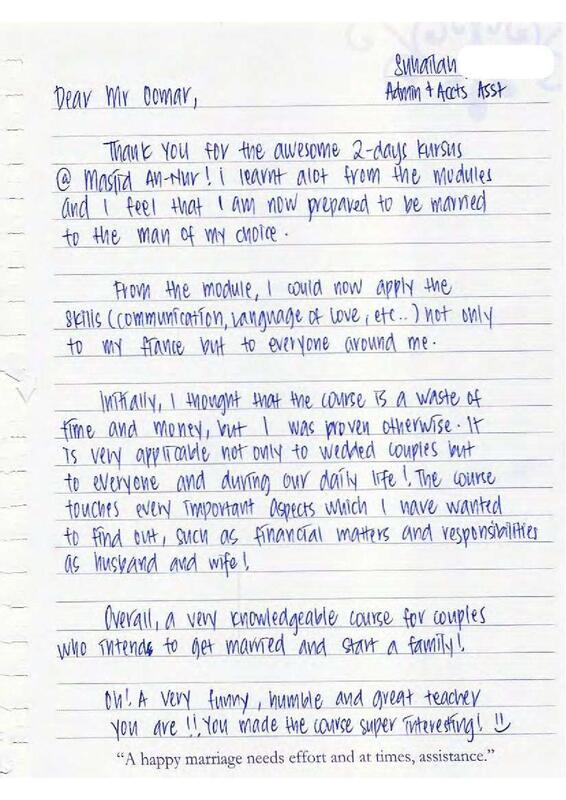 Suhailah
Admin + Accts Asst
Dear Mr Oomar,
Thank you for the awesome 2-days kursus
@ Masjid An-Nur! i learnt alot from the modules
and I feel that I am now prepared to be married
to the man of my choice.
From the module, I could now apply the
skills (communication, language of love, etc..) not only
to my fiance but to everyone around me.
Initially, I thought that the course is a waste of
time and money, but I was proven otherwise. It
is very applicable not only to wedded couples but
to everyone and during our daily life! The course
touches every important aspects which I have wanted
to find out, such as financial matters and responsibilities
as husband and wife!
Overall, a very knowledgeable course for couples
who intends to get married and start a family!
Oh! A very funny, humble and great teacher
you are !! You made the course super interesting! :)
“A happy marriage needs effort and at times, assistance.”